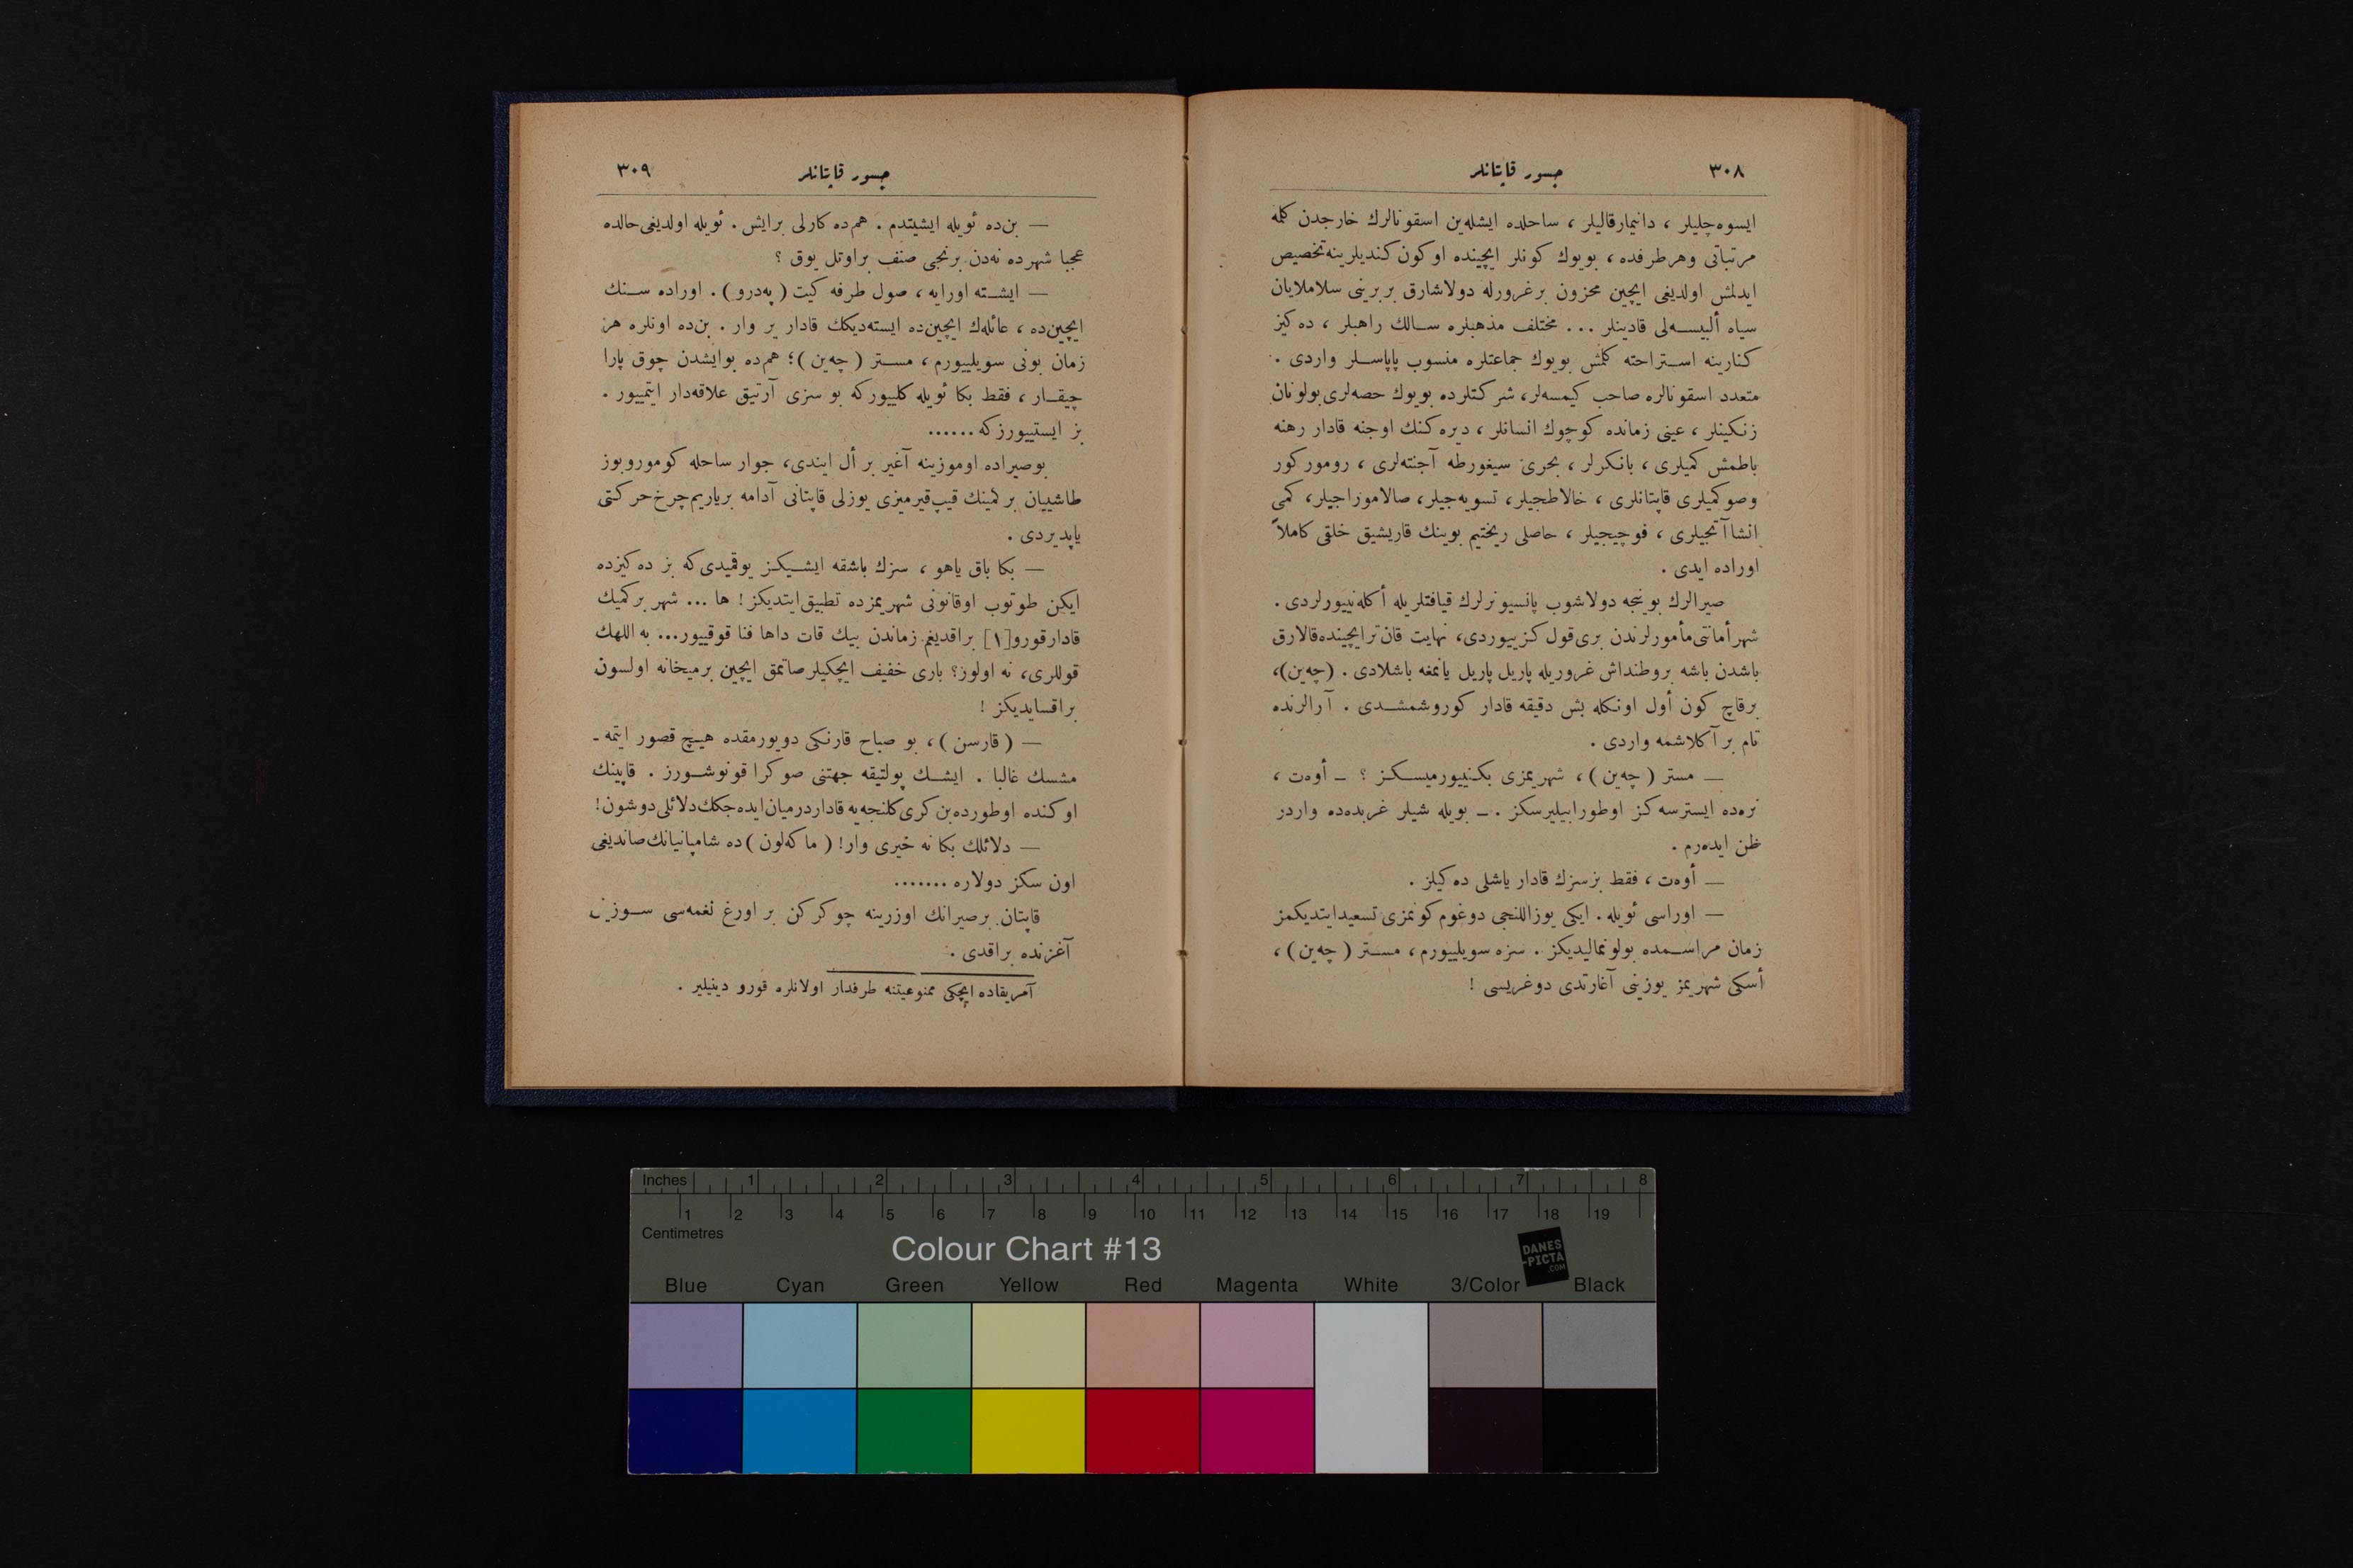 ٣٠٨
جسور قاپتانلر
ايسوه‌چليلر ، دانيمارقاليلر ، ساحلده ايشله‌ين اسقونالرك خارجدن كلمه
مرتباتى وهر طرفده ، بويوك كونلر ايچينده او كون كنديلرينه تخصيص
ايدلمش اولديغى ايچين محزون بر غرورله دولاشارق بربرينى سلاملايان
سياه ألبيسه‌لى قادينلر ... مختلف مذهبلره سالك راهبلر ، ده‌كيز
كنارينه استراحته كلمش بويوك جماعتلره منسوب پاپاسلر واردى .
متعدد اسقونالره صاحب كيمسه‌لر، شركتلرده بويوك حصه‌لرى بولونان
زنكينلر ، عينى زمانده كوچوك انسانلر ، ديره‌كنك اوجنه قادار رهنه
باطمش كميلرى ، بانكرلر ، بحرى سيغورطه آجنته‌لرى ، رومور كور
وصو كميلرى قاپتانلرى ، خالاطجيلر، تسويه‌جيلر، صالاموراجيلر، كمى
انشاآتجيلرى ، فوچيجيلر ، حاصلى ريختيم بوينك قاريشيق خلقى كاملاً
اوراده ايدى .
صيرالرك بوينجه دولاشوب پانسيونرلرك قيافتلريله أكله‌نييورلردى .
شهر أمانتى مأمورلرندن برى قول كزييوردى، نهايت قان تر ايچينده قالارق
باشدن باشه بر وطنداش غروريله پاريل پاريل يانمغه باشلادى . (چه‌ين)،
برقاچ كون أول اونكله بش دقيقه قادار كوروشمشدى . آرالرنده
تام بر آكلاشمه واردى .
— مستر (چه‌ين) ، شهريمزى بكنييورميسكز ؟ ـ أوه‌ت ،
نره‌ده ايسترسه كز اوطورابيليرسكز . ـ بويله شيلر غربده‌ده واردر
ظن ايده‌رم .
— أوه‌ت ، فقط بز سزك قادار ياشلى ده‌كيلز .
— اوراسى ئويله . ايكى يوز اللنجى دوغوم كونمزى تسعيد ايتديكمز
زمان مراسمده بولونماليديكز . سزه سويلييورم، مستر (چه‌ين) ،
أسكى شهريمز يوزينى آغارتدى دوغريسى !
جسور قاپتانلر
٣٠٩
— بن‌ده ئويله ايشيتدم . هم‌ده كارلى بر ايش . ئويله اولديغى حالده
عجبا شهرده نه‌دن برنجى صنف بر اوتل يوق ؟
— ايشته اورايه ، صول طرفه كيت (په‌درو) . اوراده سنك
ايچين‌ده ، عائله‌ك ايچين‌ده ايسته‌ديكك قادار ير وار . بن‌ده اونلره هر
زمان بونى سويلييورم ، مستر (چه‌ين)؛ هم‌ده بو ايشدن چوق پارا
چيقار ، فقط بكا ئويله كلييوركه بو سزى آرتيق علاقه‌دار ايتمييور .
بز ايستييورزكه ......
بو صيراده اوموزينه آغير بر أل ايندى، جوار ساحله كومور و بوز
طاشييان بر كمينك قيپ‌قيرميزى يوزلى قاپتانى آدامه بر ياريم چرخ حركتى
ياپديردى .
— بكا باق ياهو ، سزك باشقه ايشيكز يوقميدى كه بز ده‌كيزده
ايكن طوتوب او قانونى شهريمزده تطبيق ايتديكز ! ها ... شهر بر كميك
قادار قورو[١] براقديغم زماندن بيك قات داها فنا قوقييور... به اللهك
قوللرى، نه اولور؟ بارى خفيف ايچكيلر صاتمق ايچين بر ميخانه اولسون
براقسايديكز !
— (قارسن) ، بو صباح قارنكى دويورمقده هيچ قصور ايتمه ـ
مشسك غالبا . ايشك پولتيقه جهتنى صوكرا قونوشورز . قاپينك
اوكنده اوطورده بن كرى كلنجه‌يه قادار درميان ايده‌جكك دلائلى دوشون !
— دلائلك بكا نه خيرى وار! (ماكه‌لون) ده شامپانيانك صانديغى
اون سكز دولاره .......
قاپتان بر صيرانك اوزرينه چوكركن بر اورغ نغمه‌سى سوزينى
آغزنده براقدى .
آمريقاده ايچكى ممنوعيتنه طرفدار اولانلره قورو دينيلير .
Inches 1 2 3 4 5 6 7 8
1 2 3 4 5 6 7 8 9 10 11 12 13 14 15 16 17 18 19
Centimetres
Colour Chart #13
DANES
-PICTA
.COM
Blue Cyan Green Yellow Red Magenta White 3/Color Black